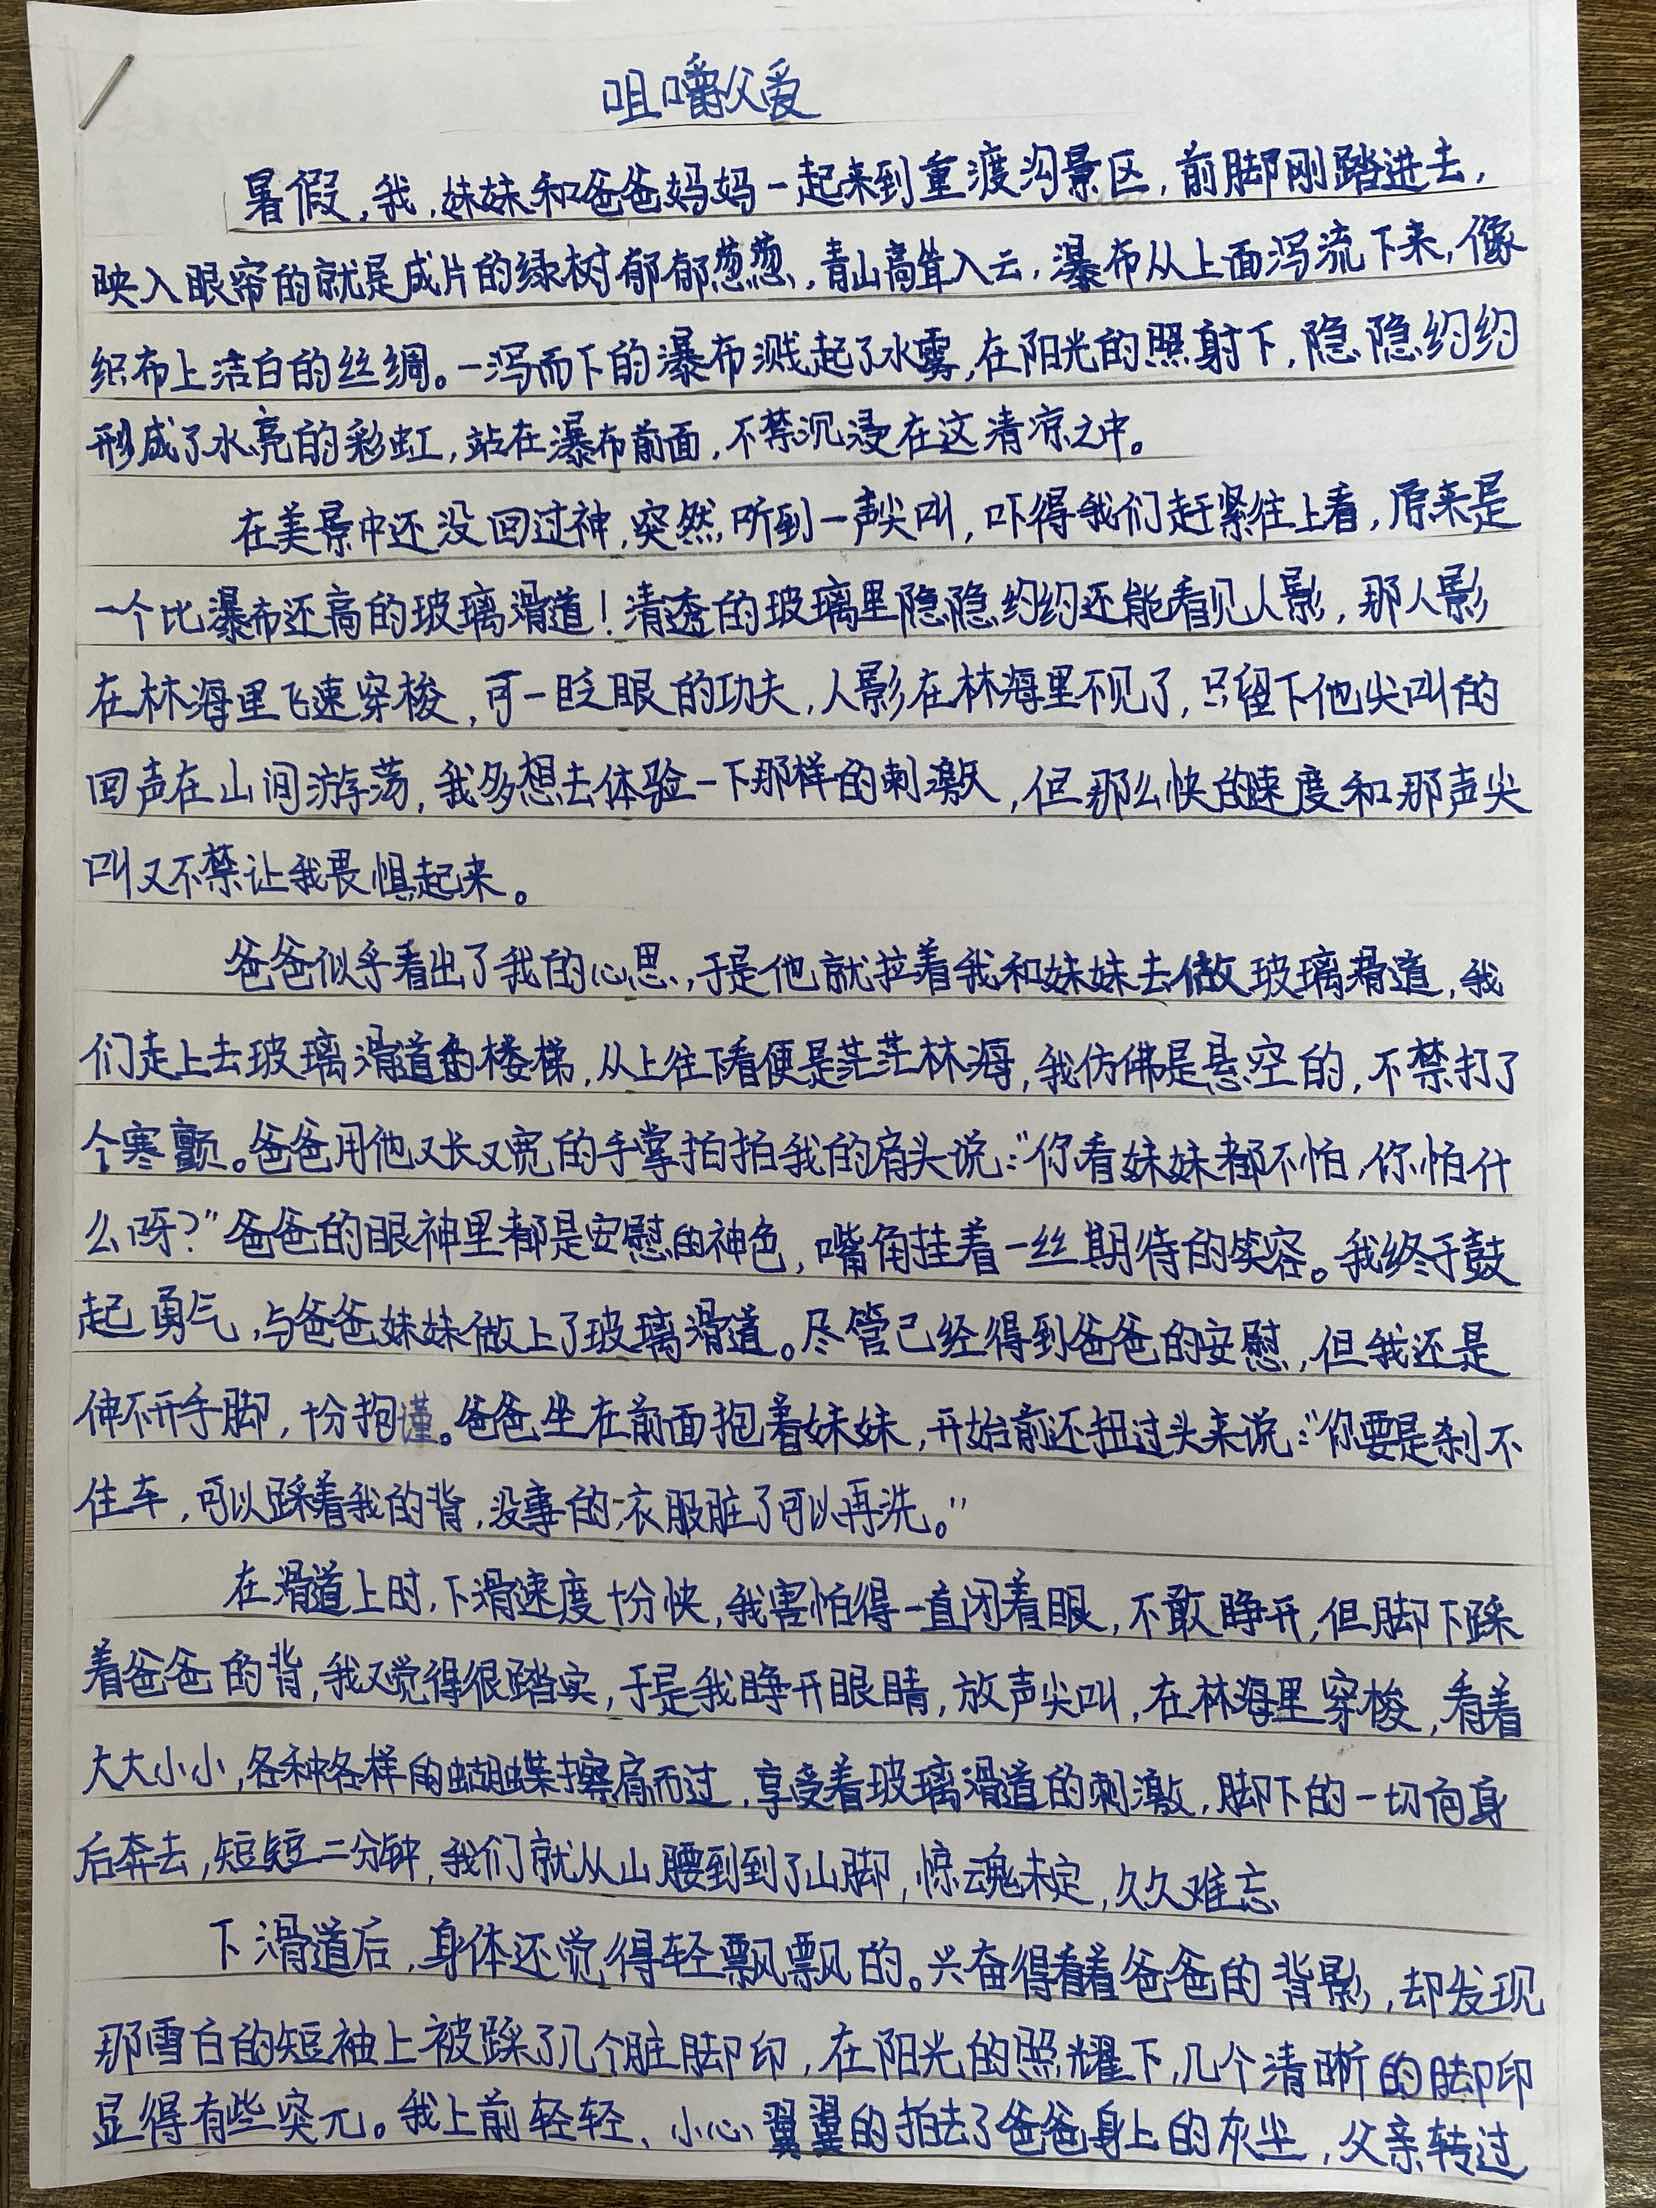 咀嚼父爱
暑假,我,妹妹和爸爸妈妈一起来到重渡沟景区,前脚刚踏进去,
映入眼帘的就是成片的绿树郁郁葱葱,青山高耸入云,瀑布从上面泻流下来,像
织布上洁白的丝绸。一泻而下的瀑布溅起了水雾,在阳光的照射下,隐隐约约
形成了水亮的彩虹,站在瀑布前面,不禁沉浸在这清凉之中。
在美景中还没回过神,突然,听到一声尖叫,吓得我们赶紧往上看,原来是
一个比瀑布还高的玻璃滑道!清透的玻璃里隐隐约约还能看见人影,那人影
在林海里飞速穿梭,可一眨眼的功夫,人影在林海里不见了,只留下他尖叫的
回声在山间游荡,我多想去体验一下那样的刺激,但那么快的速度和那声尖
叫又不禁让我畏惧起来。
爸爸似乎看出了我的心思,于是他就拉着我和妹妹去做玻璃滑道,我
们走上去玻璃滑道的楼梯,从上往下看便是茫茫林海,我仿佛是悬空的,不禁打了
个寒颤。爸爸用他又长又宽的手掌拍拍我的肩头说:“你看妹妹都不怕,你怕什
么呀?”爸爸的眼神里都是安慰的神色,嘴角挂着一丝期待的笑容。我终于鼓
起勇气,与爸爸妹妹做上了玻璃滑道。尽管已经得到爸爸的安慰,但我还是
伸不开手脚,十分拘谨。爸爸坐在前面抱着妹妹,开始前还扭过头来说:“你要是刹不
住车,可以踩着我的背,没事的,衣服脏了可以再洗。”
在滑道上时,下滑速度十分快,我害怕得一直闭着眼,不敢睁开,但脚下踩
着爸爸的背,我又觉得很踏实,于是我睁开眼睛,放声尖叫,在林海里穿梭,看着
大大小小,各种各样的蝴蝶擦肩而过,享受着玻璃滑道的刺激,脚下的一切向身
后奔去,短短二分钟,我们就从山腰到到了山脚,惊魂未定,久久难忘
下滑道后,身体还觉得轻飘飘的。兴奋得看着爸爸的背影,却发现
那雪白的短袖上被踩了几个脏脚印,在阳光的照耀下,几个清晰的脚印
显得有些突兀。我上前轻轻、小心翼翼的拍去了爸爸身上的灰尘,父亲转过